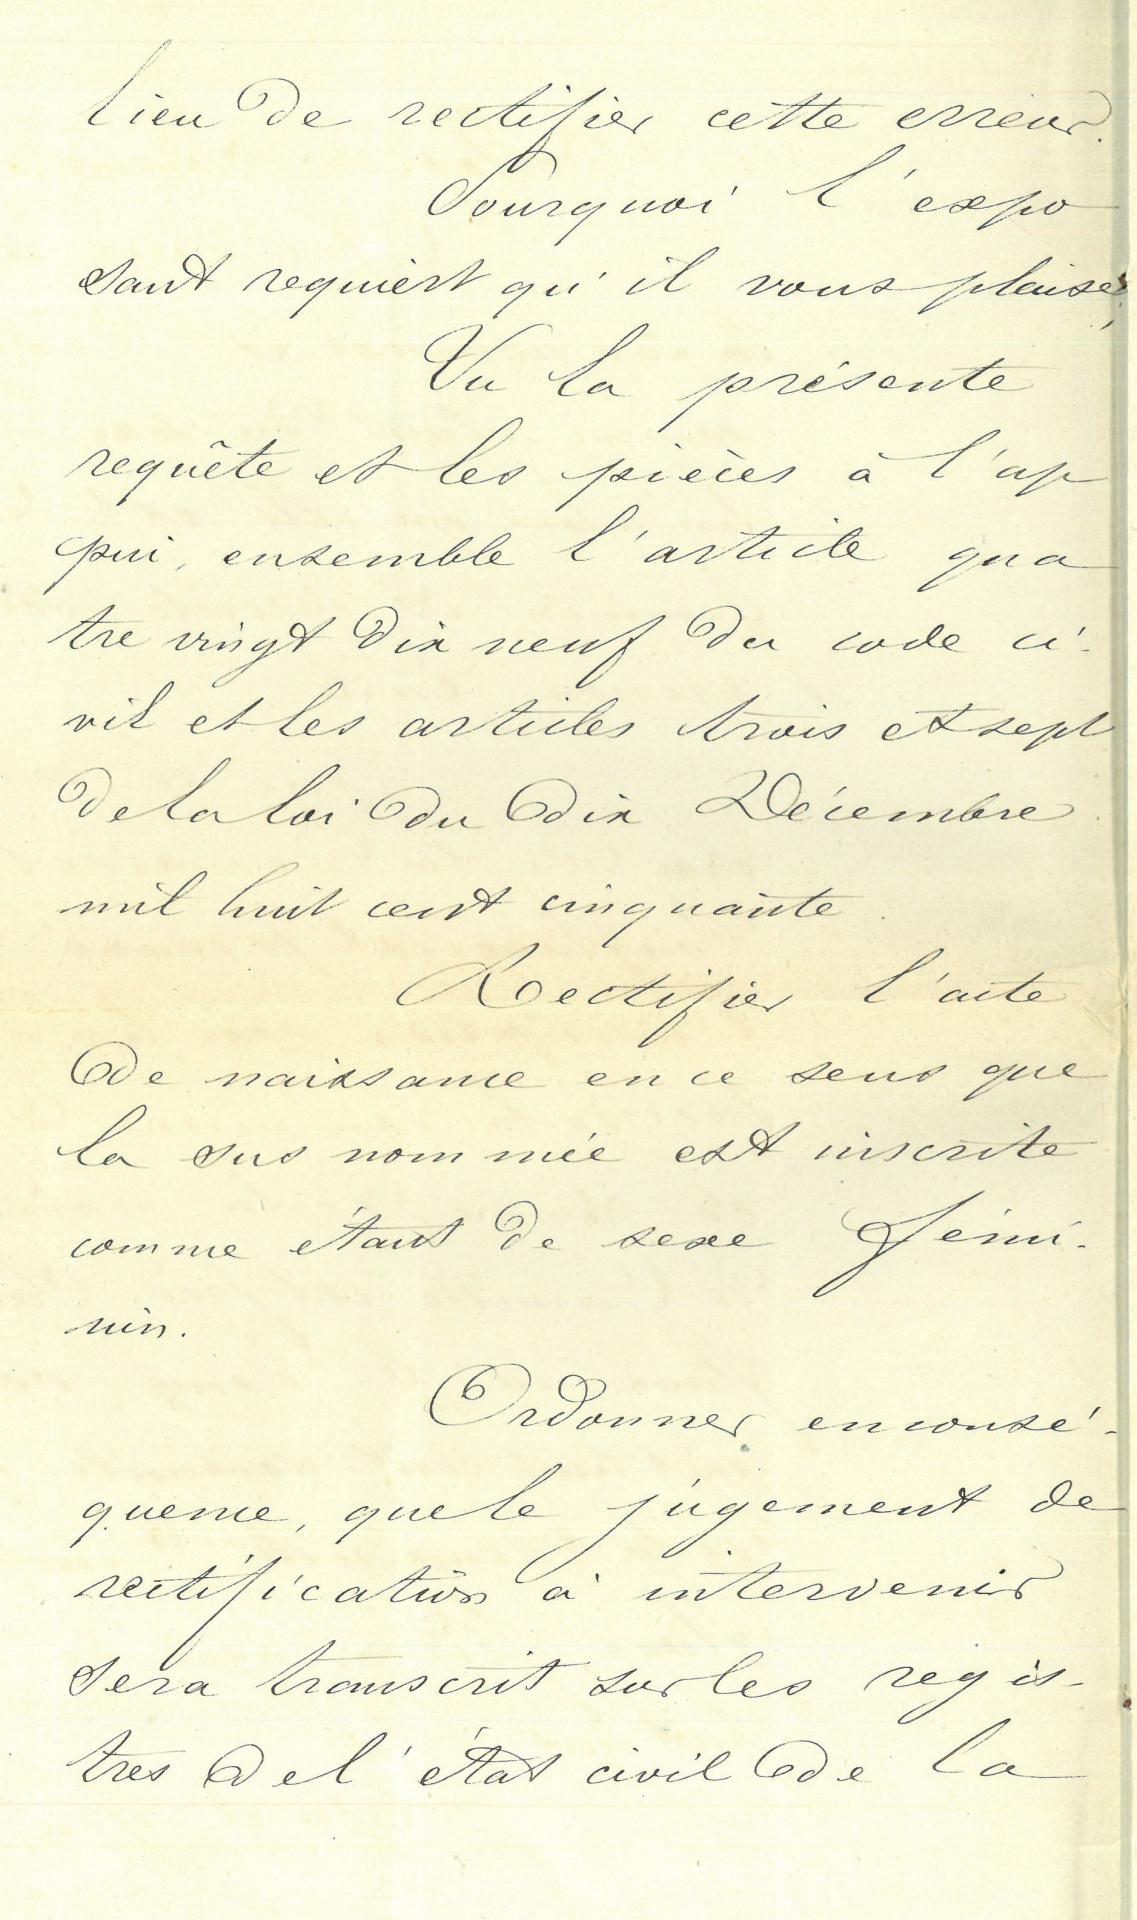 lieu de rectifier cette erreur.
Pourquoi l'expo
sant requiert qu'il vous plaise,
Vu la présente
requête et les pièces à l'ap
pui, ensemble l'article qua
tre vingt dix neuf du code ci-
vil et les articles trois et sept
de la loi du dix Décembre
mil huit cent cinquante.
Rectifier l'acte
de naissance en ce sens que
la sus nommée est inscrite
comme étant de sexe fémi-
nin.
Ordonner en consé-
quence, que le jugement de
rectification à intervenir
sera transcrit sur les regis-
tres de l'état civil de la